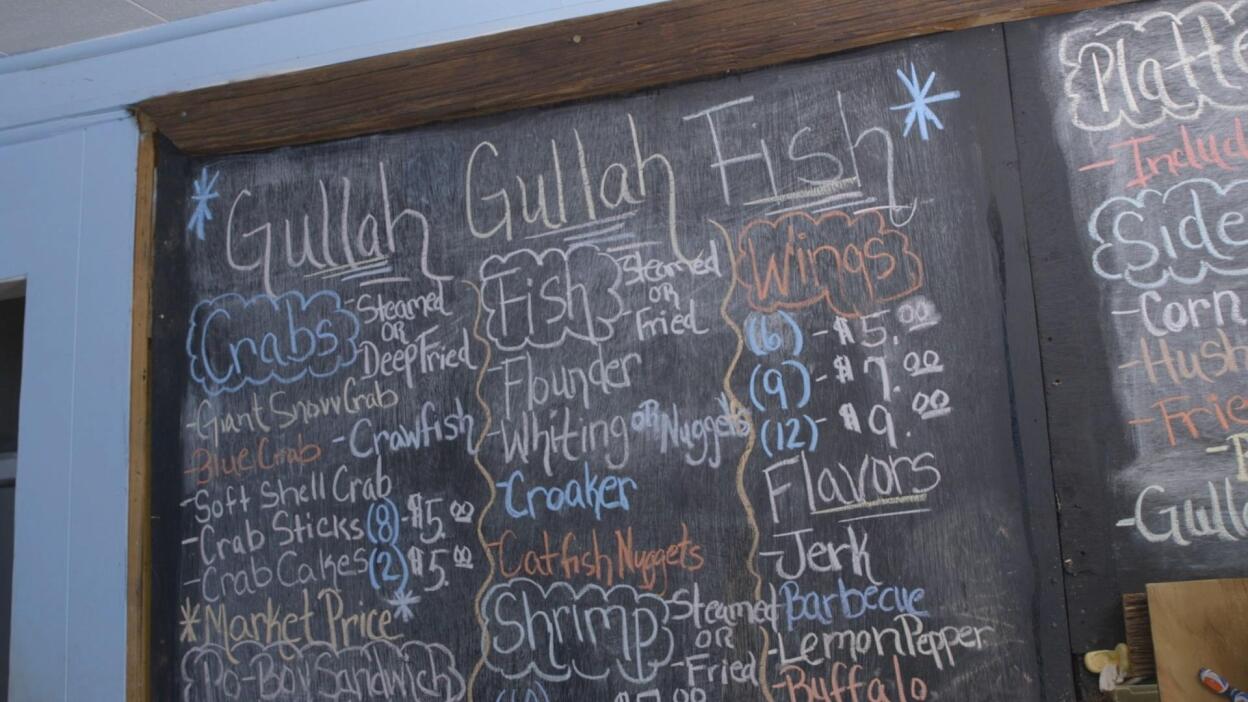 Gullah Gullah Fish
Crabs
-Steamed
OR
Deep Fried
-Giant Snow Crab
-Blue Crab
-Crawfish
-Soft Shell Crab
-Crab Sticks (8)-$5.00
-Crab Cakes (2) $5.00
*Market Price*
Po-Boy Sandwich
Fish
-Steamed
OR
Fried
-Flounder
-Whiting OR Nuggets
-Croaker
-Catfish Nuggets
Shrimp
-Steamed
OR
-Fried
$7.00
Wings
(6)-$5.00
(9)-$7.00
(12)-$9.00
Flavors
-Jerk
-Barbecue
-Lemon Pepper
-Buffalo
Platte
-Includ
Side
-Corn
-Hush
-Frie
-Gulla